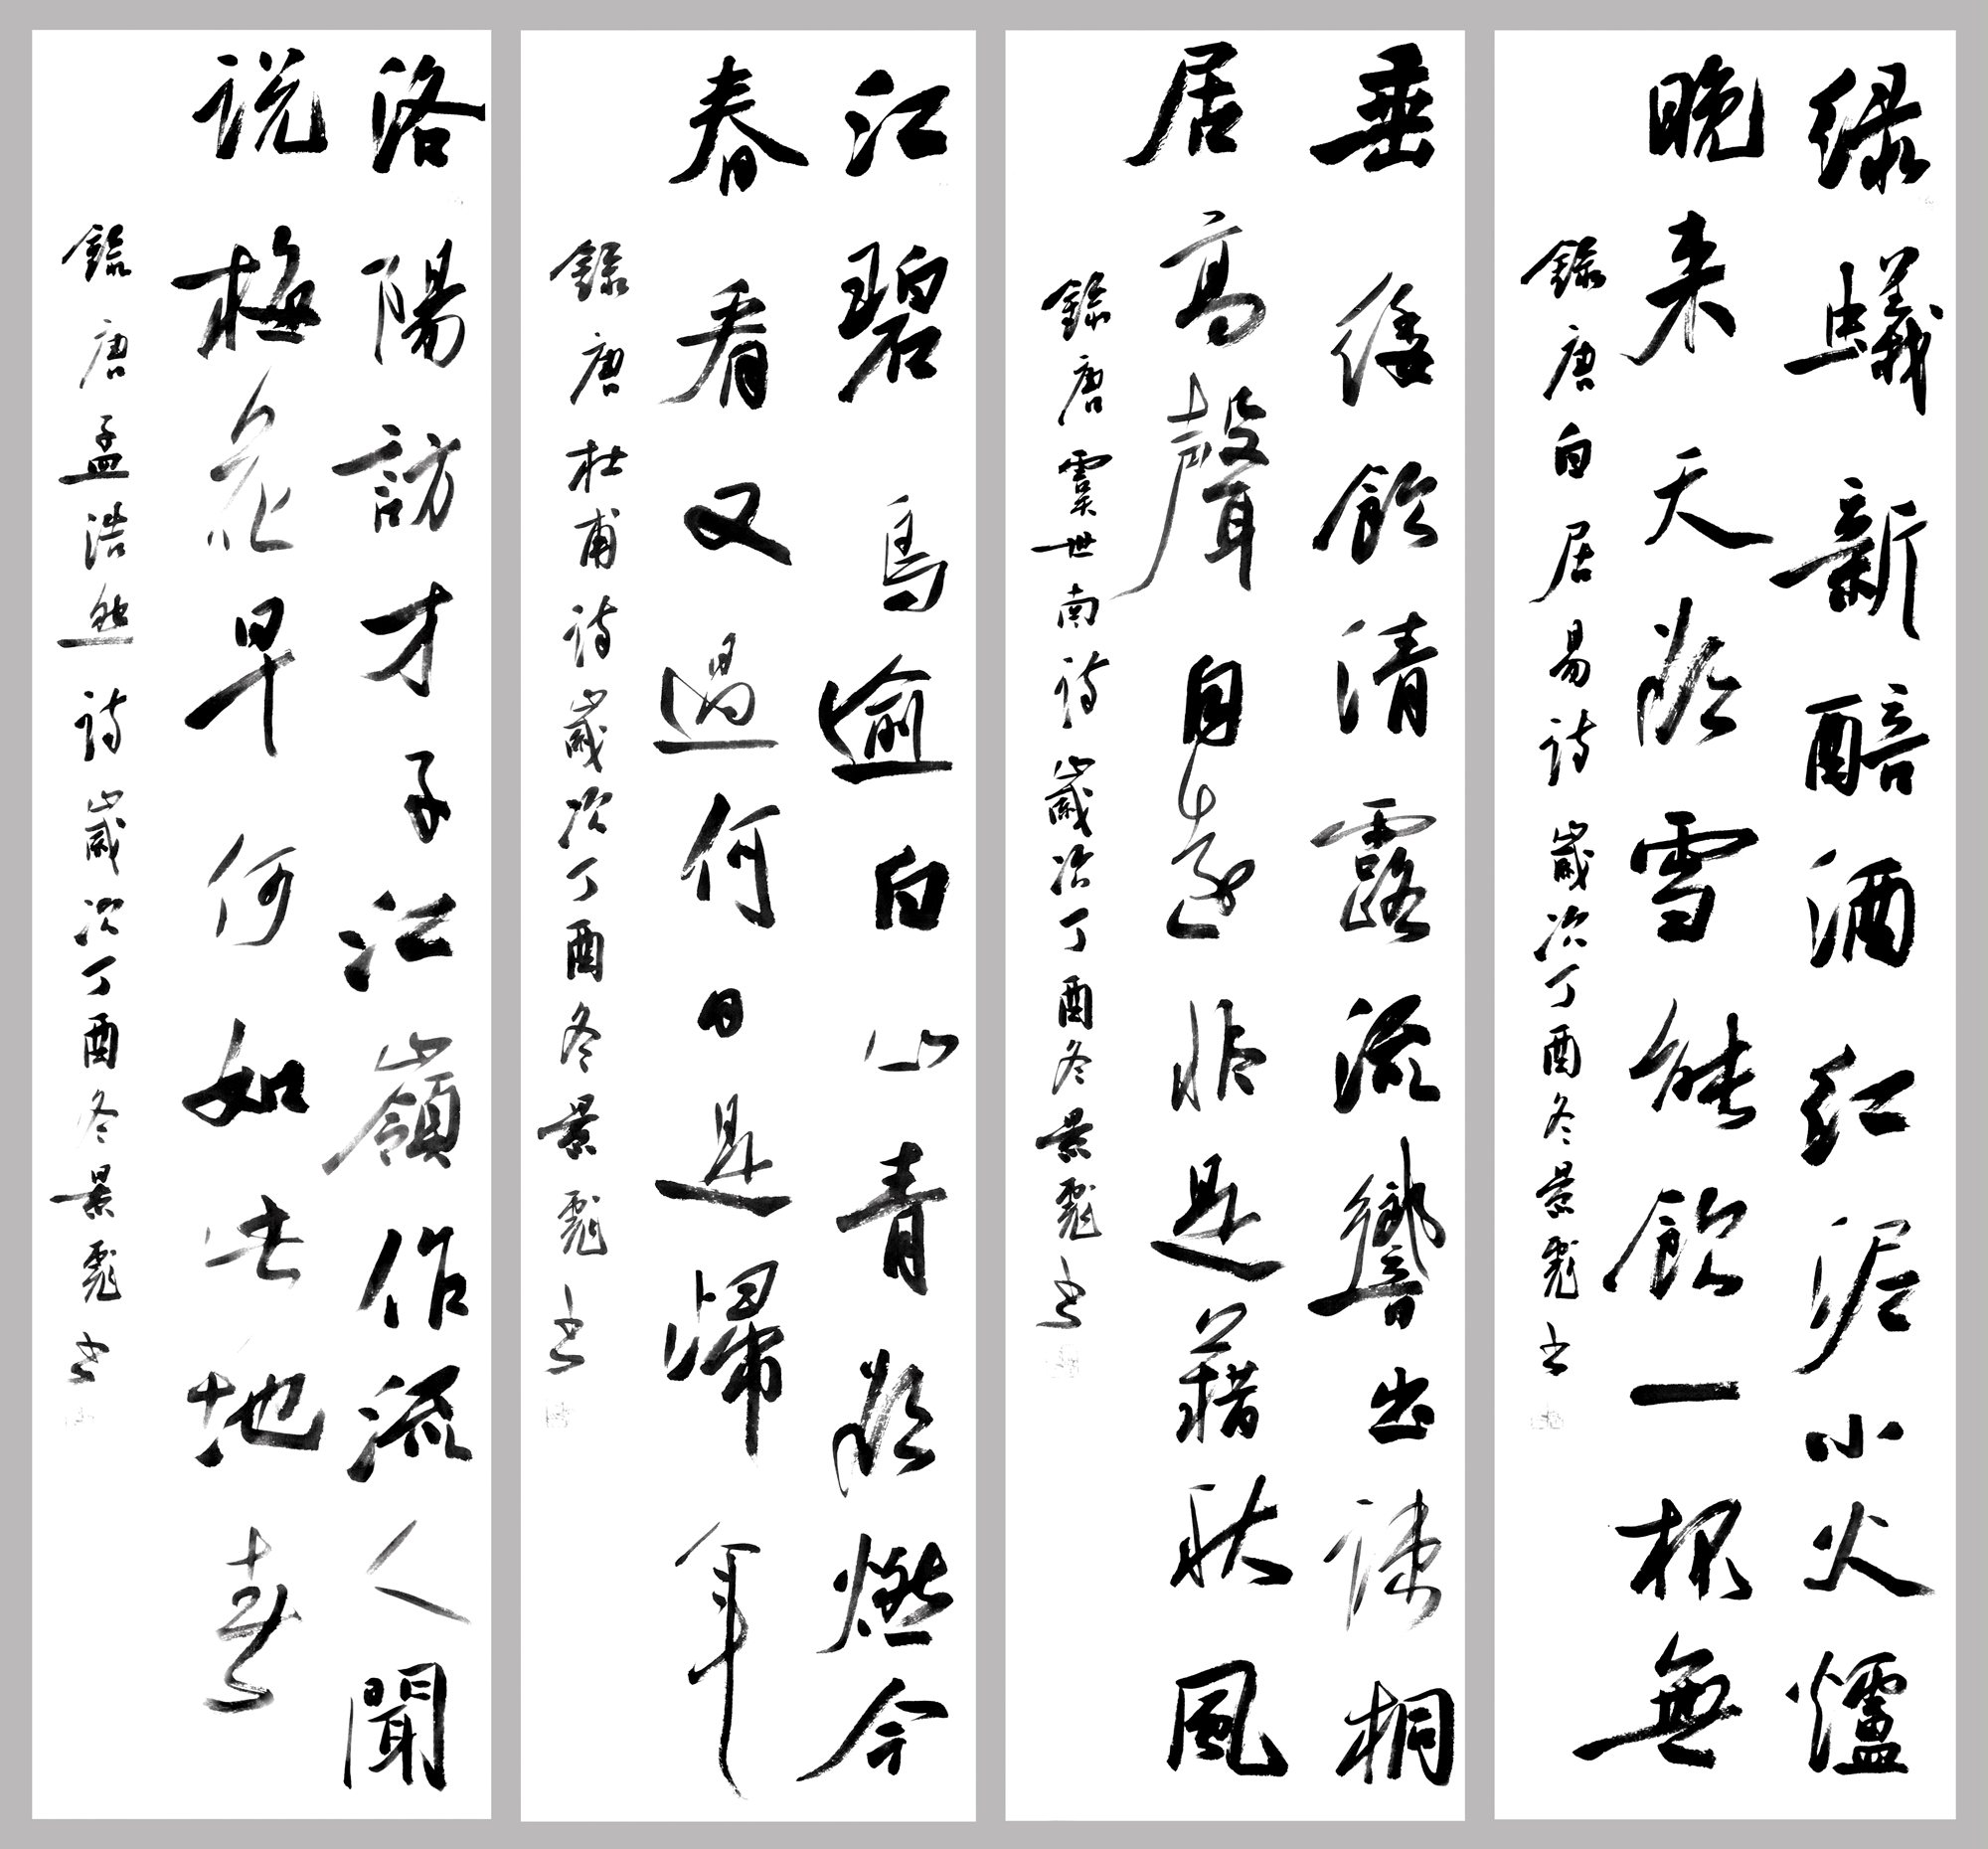 绿蟻新醅酒紅泥小火爐
晚来天欲雪能飲一杯無
錄唐白居易詩歲次丁酉冬景彪书
垂緌飲清露流響出疎桐
居高聲自遠非是藉秋風
錄唐虞世南詩歲次丁酉冬景彪书
江碧鳥逾白山青欲燃今
春看又過何日是歸年
錄唐杜甫詩歲次丁酉冬景彪书
洛陽訪才子江嶺作流人聞
説梅花早何如此地春
錄唐孟浩然詩歲次丁酉冬景彪书